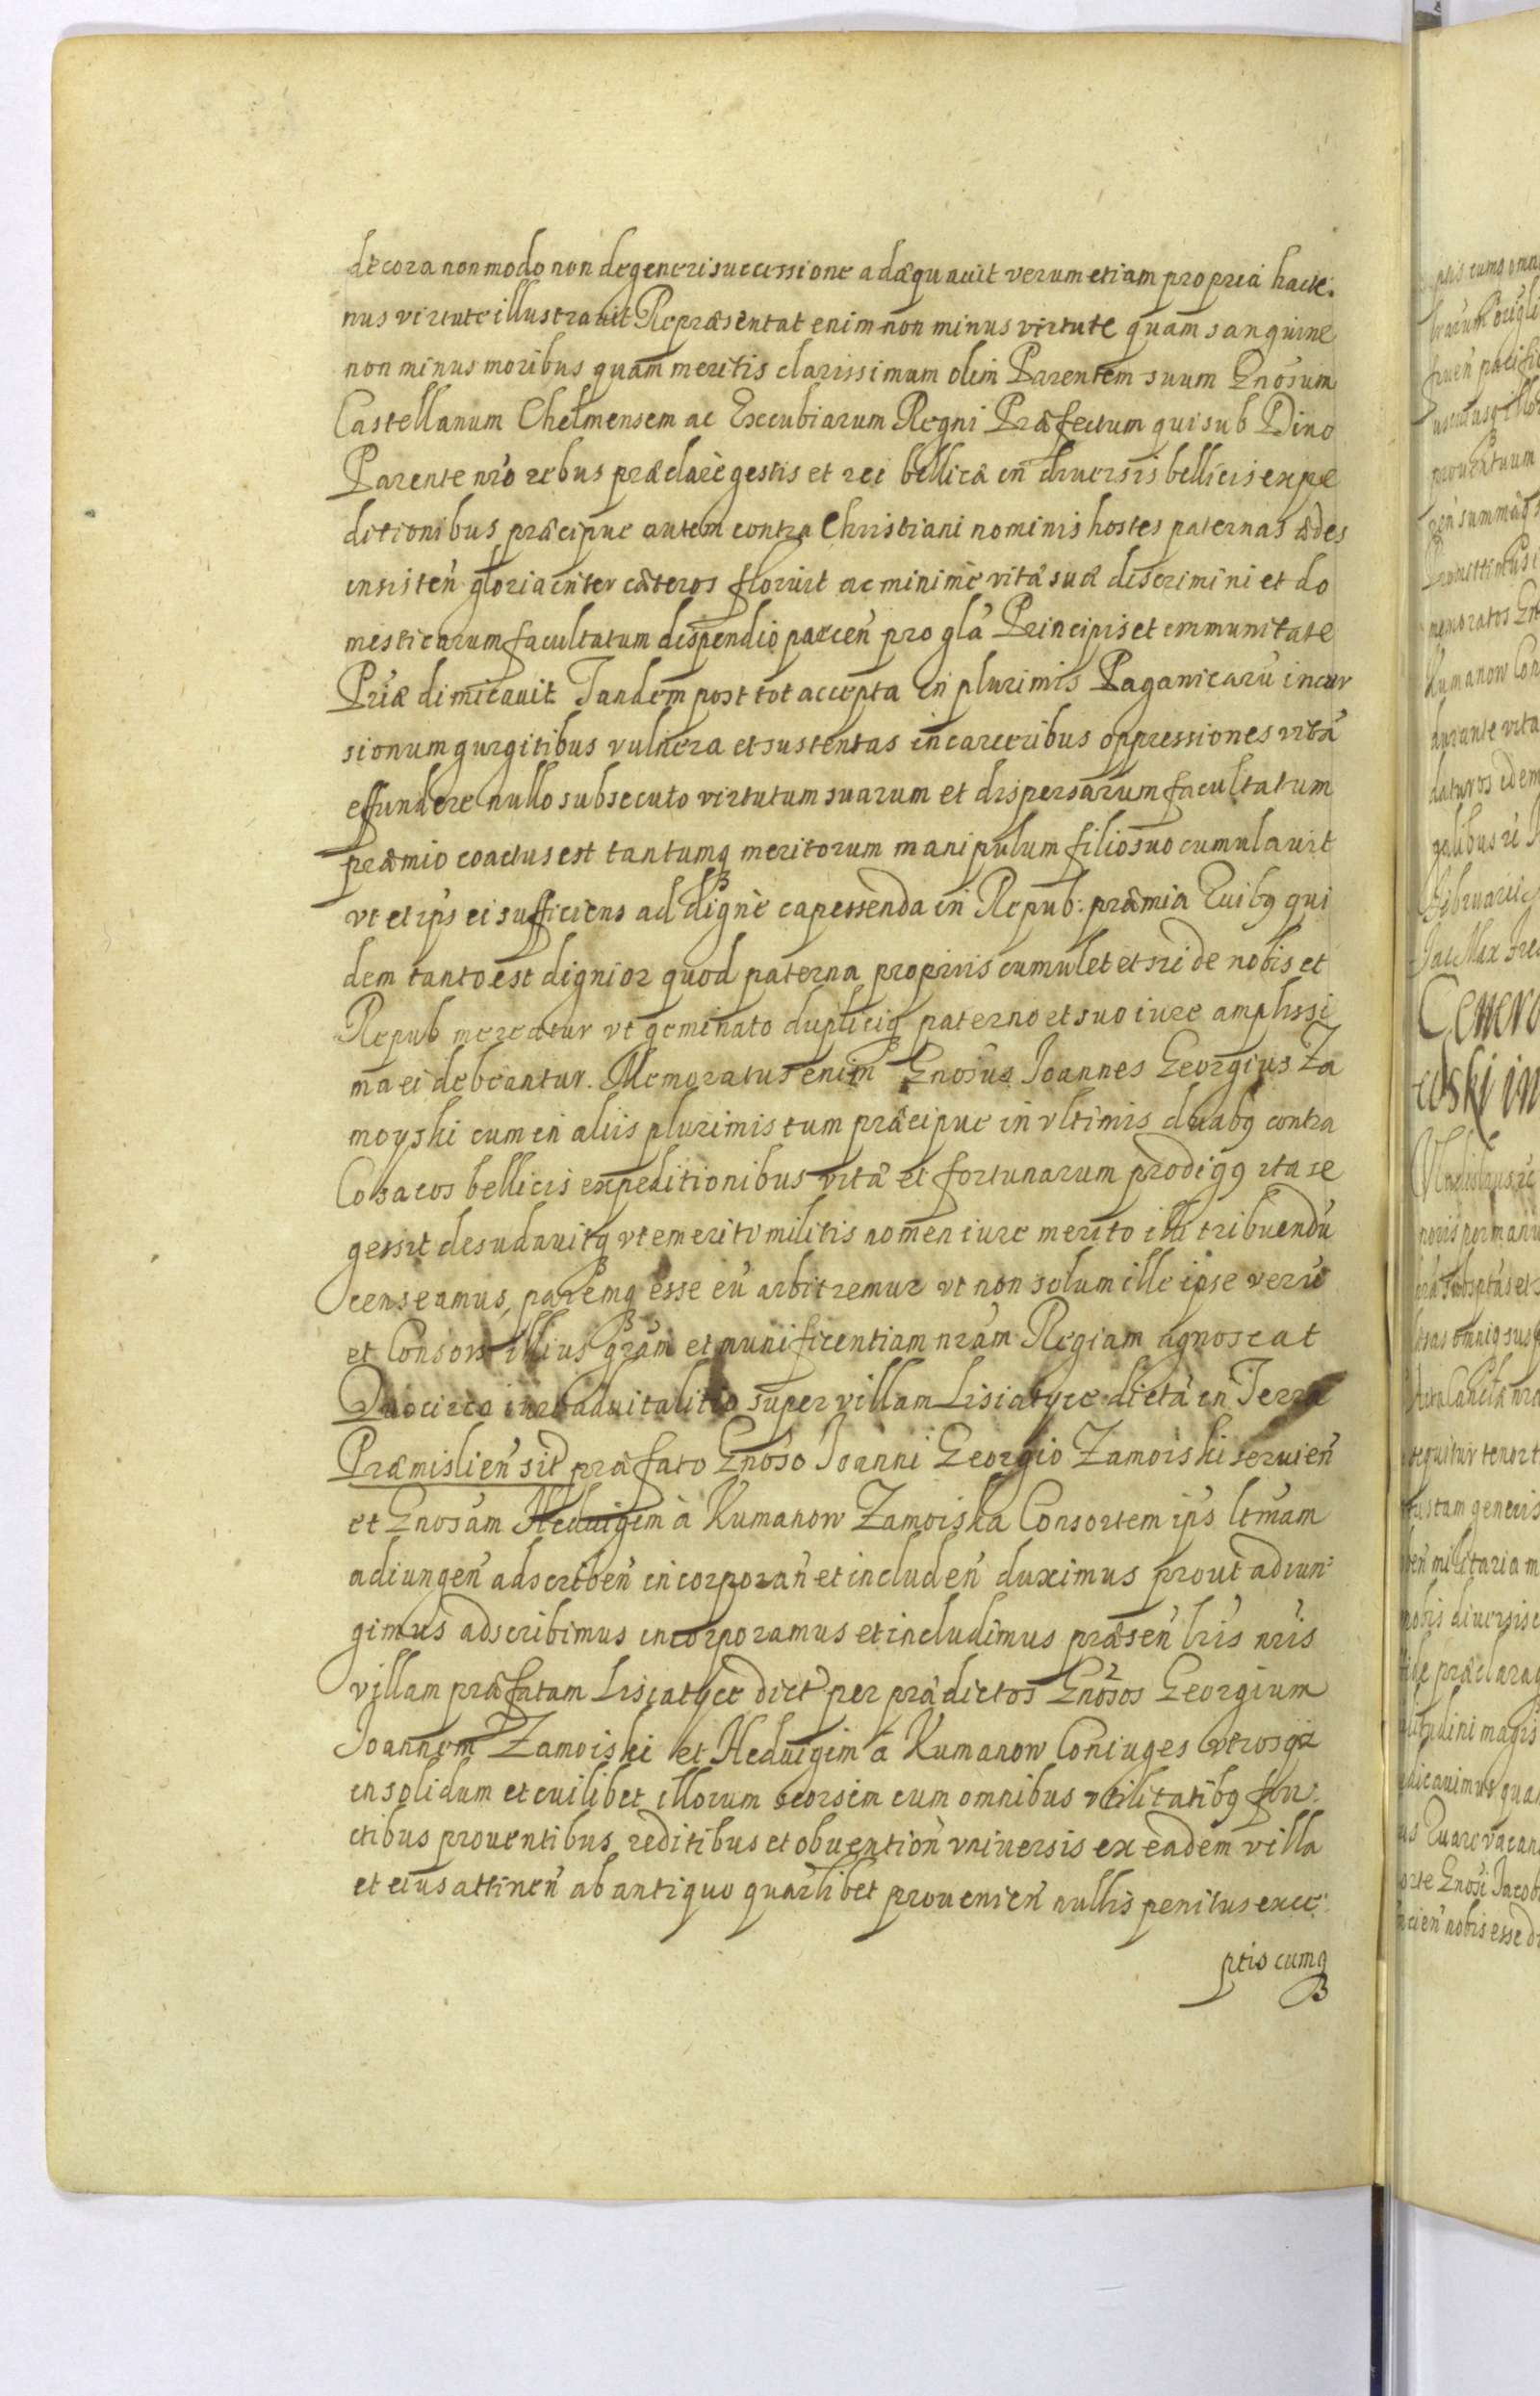 decora non modo non degeneri successione adæquauit verum etiam propria hacte.
nus virtute illustrauit Repræsentat enim non minus virtute quam sanguine
non minus moribus quam meritis clarissimum olim Parentem suum Gnosum
Castellanum Chelmensem ac Excubiarum Regni Præfectum qui sub Diuo
Parente nro rebus præclarè gestis et rei bellica in diuersis bellicis expe
ditionibus præcipue autem contra Christiani nominis hostes paternas ædes
insisteń gloria inter cæteros floruit ac minimè vitæ suæ discrimini et do
mesticarum facultatum dispendio parceń pro gla Principis et immunitate
Priæ dimicauit Tandem post tot accepta in plurimis Paganicarū incur
sionum gurgitibus vulnera et sustentas in carceribus oppressiones vitā
effundere nullo subsecuto virtutum suarum et dispersarum facultatum
præmio coactus est tantumq meritorum manipulum filio suo cumulauit
vt et ips ei sufficiens ad dignè capessenda in Repub: præmia Quibq qui
dem tanto est dignior quod paterna propriis cumulet et sic de nobis et
Repub mereatur vt geminato dupliciq paterno et suo iure amplissi
ma ei debeantur. Memoratus enim Gnosus Joannes Georgius Za
moyski cum in aliis plurimis tum præcipue in vltimis duabq contra
Cosacos bellicis expeditionibus vitæ et fortunarum prodigq ita se
gessit desudauitq vt emeriti militis nomen iure merito illi tribuendū
censeamus, paremq esse eū arbitremur vt non solum ille ipse verū
et Consors illius gram et munificentiam nram Regiam agnoscat
Quocirca iure aduitalitio super villam Lisiatyce dictā in Terra
Præmislień sit præfato Gnoso Joanni Georgio Zamoiski seruień
et Gnosam Heduigim à Kumanow Zamoiska Consortem ips ltmam
adiungeń adscribeń incorporań et includeń duximus prout adiun:
gimus adscribimus incorporamus et includimus præseń lris nris
villam præfatam Lisiatyce dict per prædictos Gnosos Georgium
Joannem Zamoiski et Heduigim à Kumanow Coniuges vtrosq
in solidum et cuilibet illorum seorsim cum omnibus vtilitatibq fru:
ctibus prouentibus reditibus et obuention vniuersis ex eadem villa
et eius attineń ab antiquo quarlibet prouenień nullis penitus exce:
ptis cumq